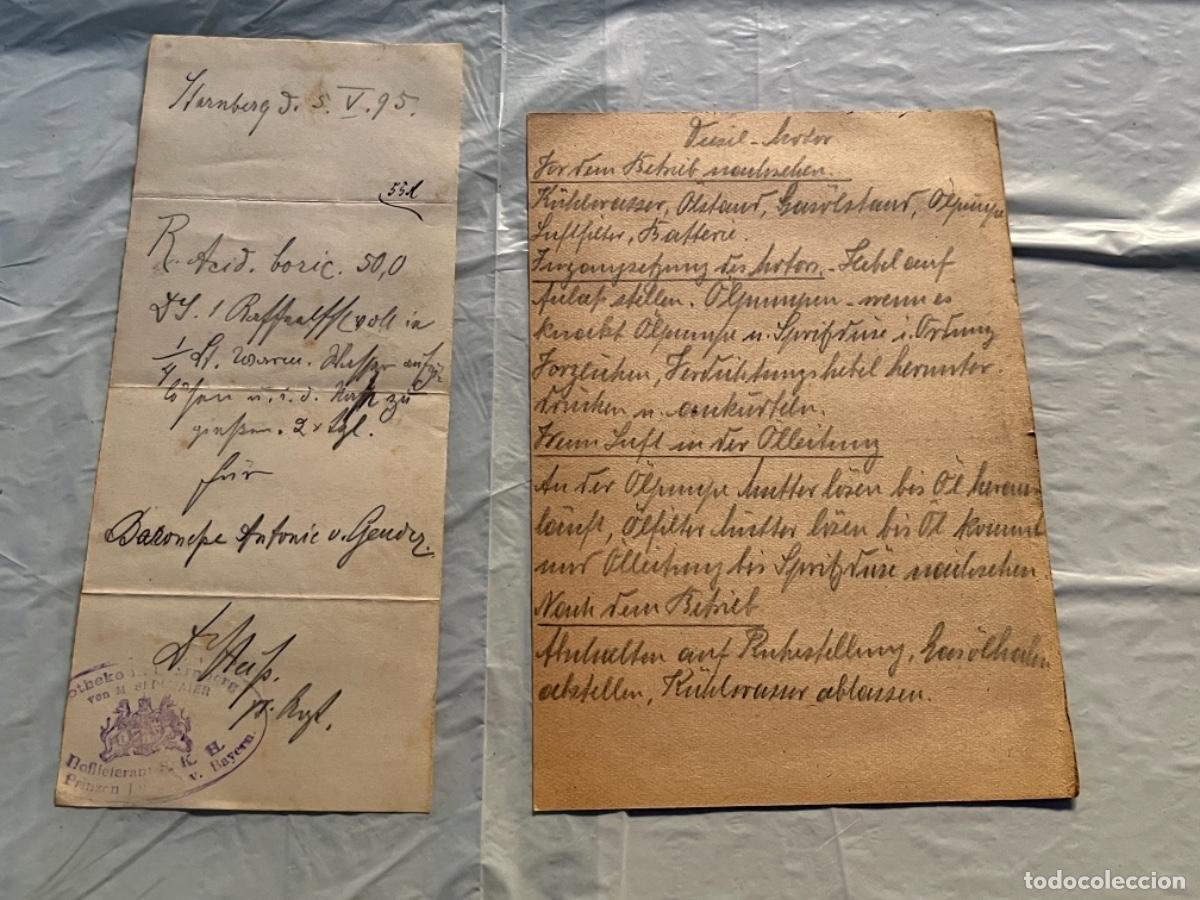 Starnberg d. 5. V. 95.
55 d
R. Acid. boric. 50,0
DS. 1 Kaffeelffl voll in
1/4 Lt. warm. Wasser aufzu
lösen u. i. d. zu
gießen. 2 x tgl.
für
Baronesse Antonie v.
Dr
pr. Arzt.
Apotheke Starnberg
von M.
Hoflieferant S. K. H.
Prinzen v. Bayern.
Diesel-Motor
Vor dem Betrieb nachsehen.
Kühlwasser, Ölstand, Gasölstand, Ölpumpe
Luftfilter, Batterie.
Ingangsetzung des Motors. - Hebel auf
Anlaß stellen. Ölpumpen - wenn es
knackt Ölpumpe u. Spritzdüse i. Ordnung
Vorglühen, Verdichtungshebel herunter-
drücken u. ankurbeln.
Wenn Luft in der Ölleitung
An der Ölpumpe Mutter lösen bis Öl heraus-
läuft, Ölfilter Mutter lösen bis Öl kommt
und Ölleitung bis Spritzdüse nachsehen
Nach dem Betrieb
Anhalten auf Ruhestellung, Gasölhahn
abstellen, Kühlwasser ablassen.
todocoleccion